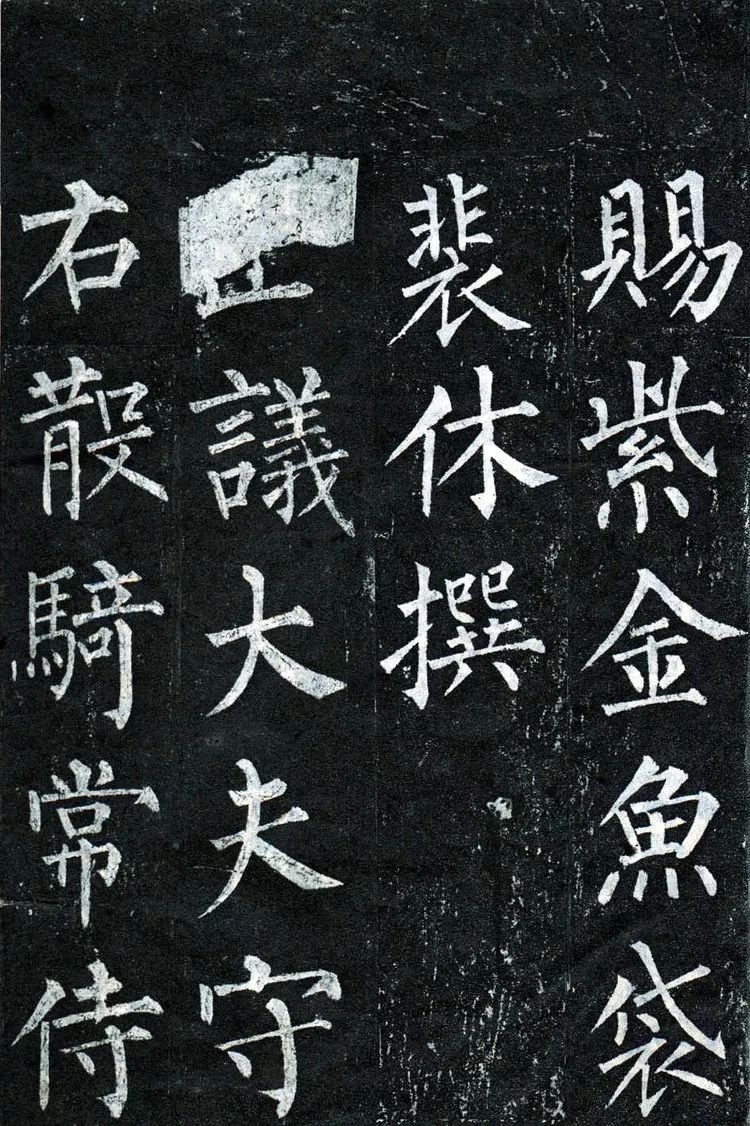 賜紫金魚袋
裴休撰
正議大夫守
右散騎常侍